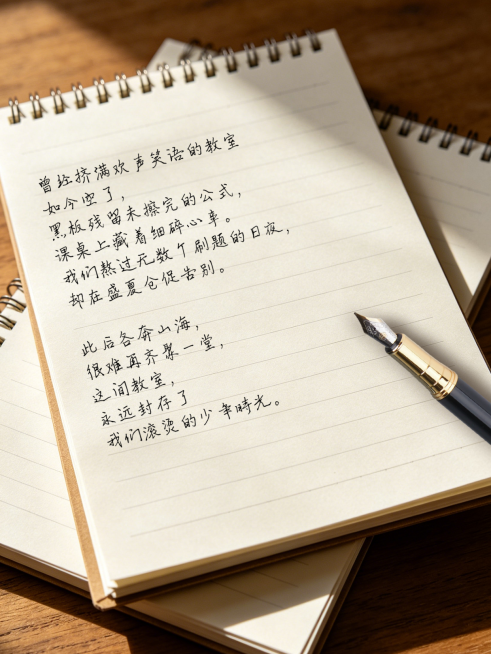 曾经挤满欢声笑语的教室
如今空了，
黑板残留未擦完的公式，
课桌上藏着细碎心事。
我们熬过无数个刷题的日夜，
却在盛夏仓促告别。
此后各奔山海，
很难再齐聚一堂，
这间教室，
永远封存了
我们滚烫的少年時光。